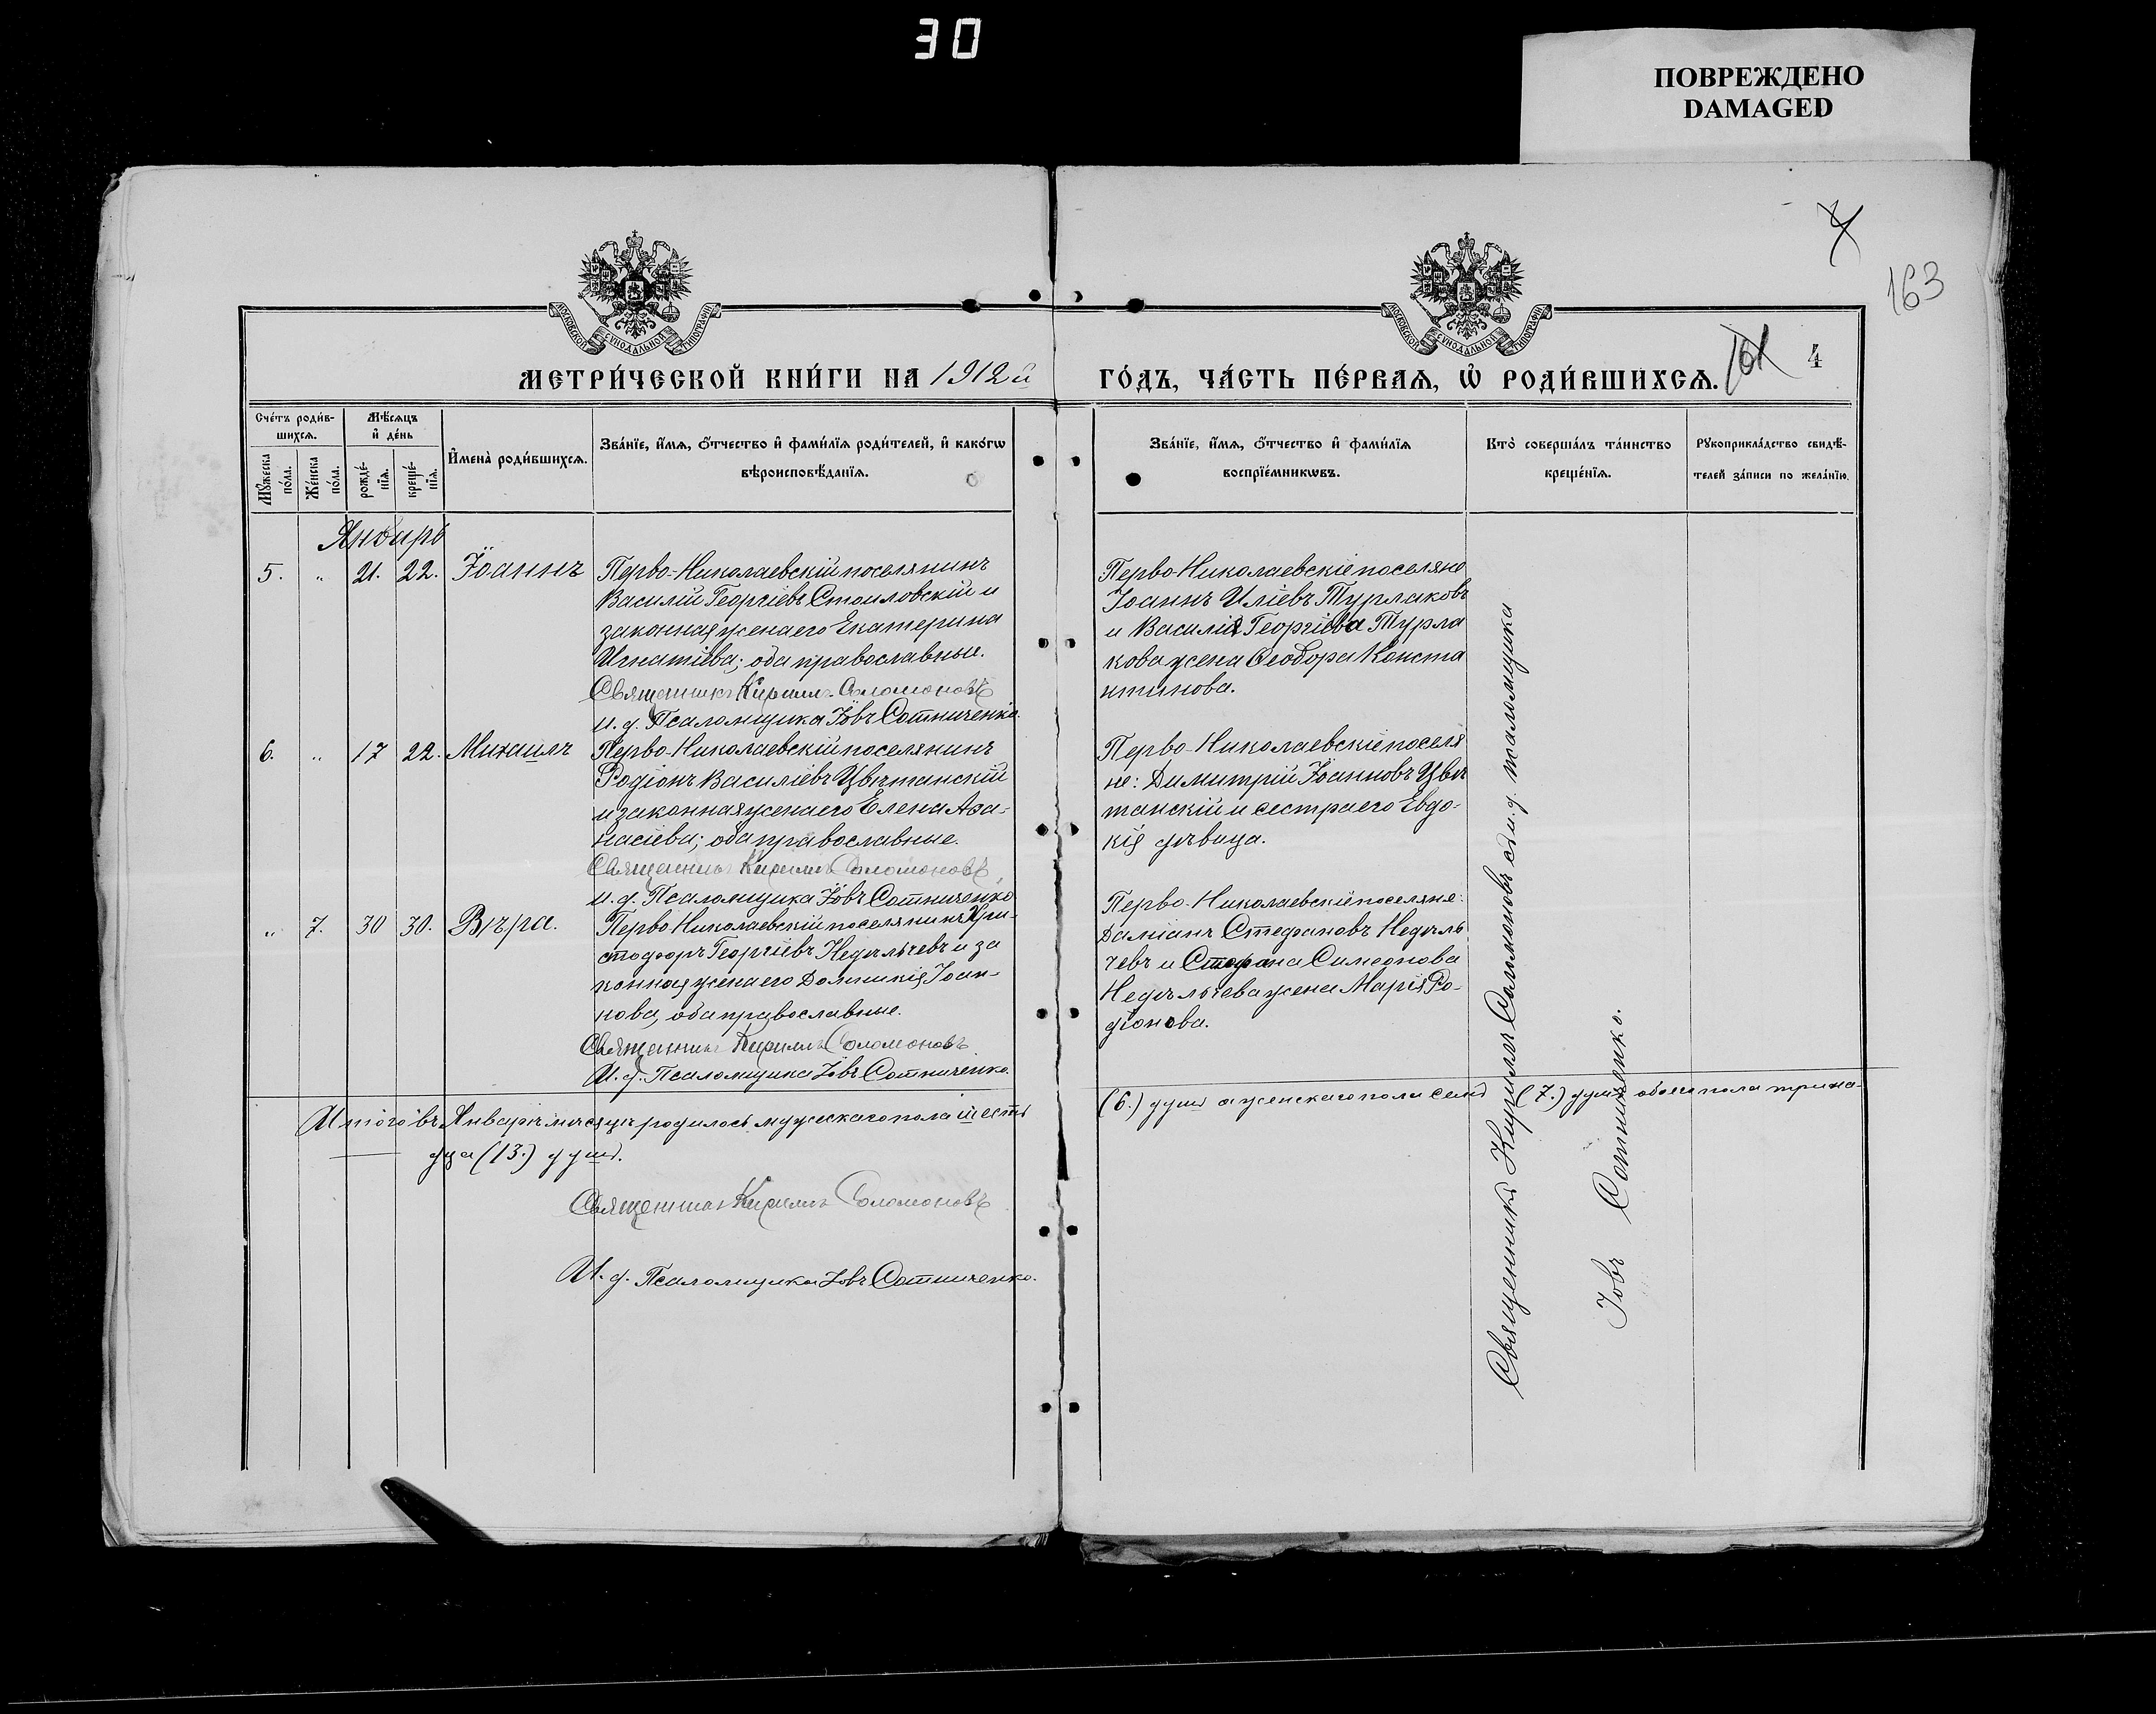 30
ПОВРЕЖДЕНО
DAMAGED
163
4
МОСКОВСКОЙ СѴНОДАЛЬНОЙ ТИПОГРАФІИ
МОСКОВСКОЙ СѴНОДАЛЬНОЙ ТИПОГРАФІИ
МЕТРИ́ЧЕСКОЙ КНИ́ГИ НА 1912й
ГО́ДЪ, ЧА́СТЬ ПЕ́РВАѦ, Ѡ҆ РОДИ́ВШИХСѦ.
Сче́тъ роди́в-
шихсѧ.
Мѣ́сѧцъ
и҆ де́нь
Мꙋ́жеска
по́ла.
Же́нска
по́ла.
рожде́-
нїѧ.
креще́-
нїѧ.
И҆мена̀ роди́вшихсѧ.
Зва́нїе, и҆́мѧ, ѻ҆́тчество и҆ фами́лїѧ роди́телей, и҆ како́гѡ
вѣроисповѣ́данїѧ.
Зва́нїе, и҆́мѧ, ѻ҆́тчество и҆ фами́лїѧ
воспрїе́мникѡвъ.
Кто̀ соверша́лъ та́инство
креще́нїѧ.
Рꙋкоприкла́дство свидѣ́-
телей за́писи по жела́нїю.
Январь
5. „ 21. 22. Іоаннъ
Перво-Николаевскій поселянинъ
Василій Георгіевъ Стоиловскій и
законная жена его Екатерина
Игнатіева; оба православные.
Священникъ Кириллъ Соломоновъ
и. д. Псаломщика Іовъ Сотниченко.
Перво Николаевскіе поселяне
Іоаннъ Иліевъ Турлаковъ
и Василія Георгіева Турла
кова жена Ѳеодора Конста
нтинова.
6. „ 17 22. Михаилъ
Перво-Николаевскій поселянинъ
Родіонъ Василіевъ Цвѣтанскій
и законная жена его Елена Аѳа-
насіева; оба православные.
Священникъ Кириллъ Соломоновъ
и. д. Псаломщика Іовъ Сотниченко
Перво-Николаевскіе поселя
не: Димитрій Іоанновъ Цвѣ
танскій и сестра его Евдо-
кія дѣвица.
„ 7. 30 30. Вѣра.
Перво Николаевскій поселянинъ Хри-
стофоръ Георгіевъ Недѣльчевъ и за
конная жена его Домникія Іоан-
нова, оба православные.
Священникъ Кириллъ Соломоновъ
И. д. Псаломщика Іовъ Сотниченко.
Перво-Николаевскіе поселяне:
Даміанъ Стефановъ Недѣль
чевъ и Стефана Симеонова
Недѣльчева жена Марія Ро-
діонова.
Священникъ Кириллъ Соломоновъ съ и. д. псаломщика
Іовъ Сотниченко.
Итого въ Январѣ мѣсяцѣ родилось мужскаго пола шесть (6.) душъ а женскаго пола семь (7.) душъ обоего пола трина-
дца (13.) душъ.
Священникъ Кириллъ Соломоновъ
И. д. Псаломщика Іовъ Сотниченко.